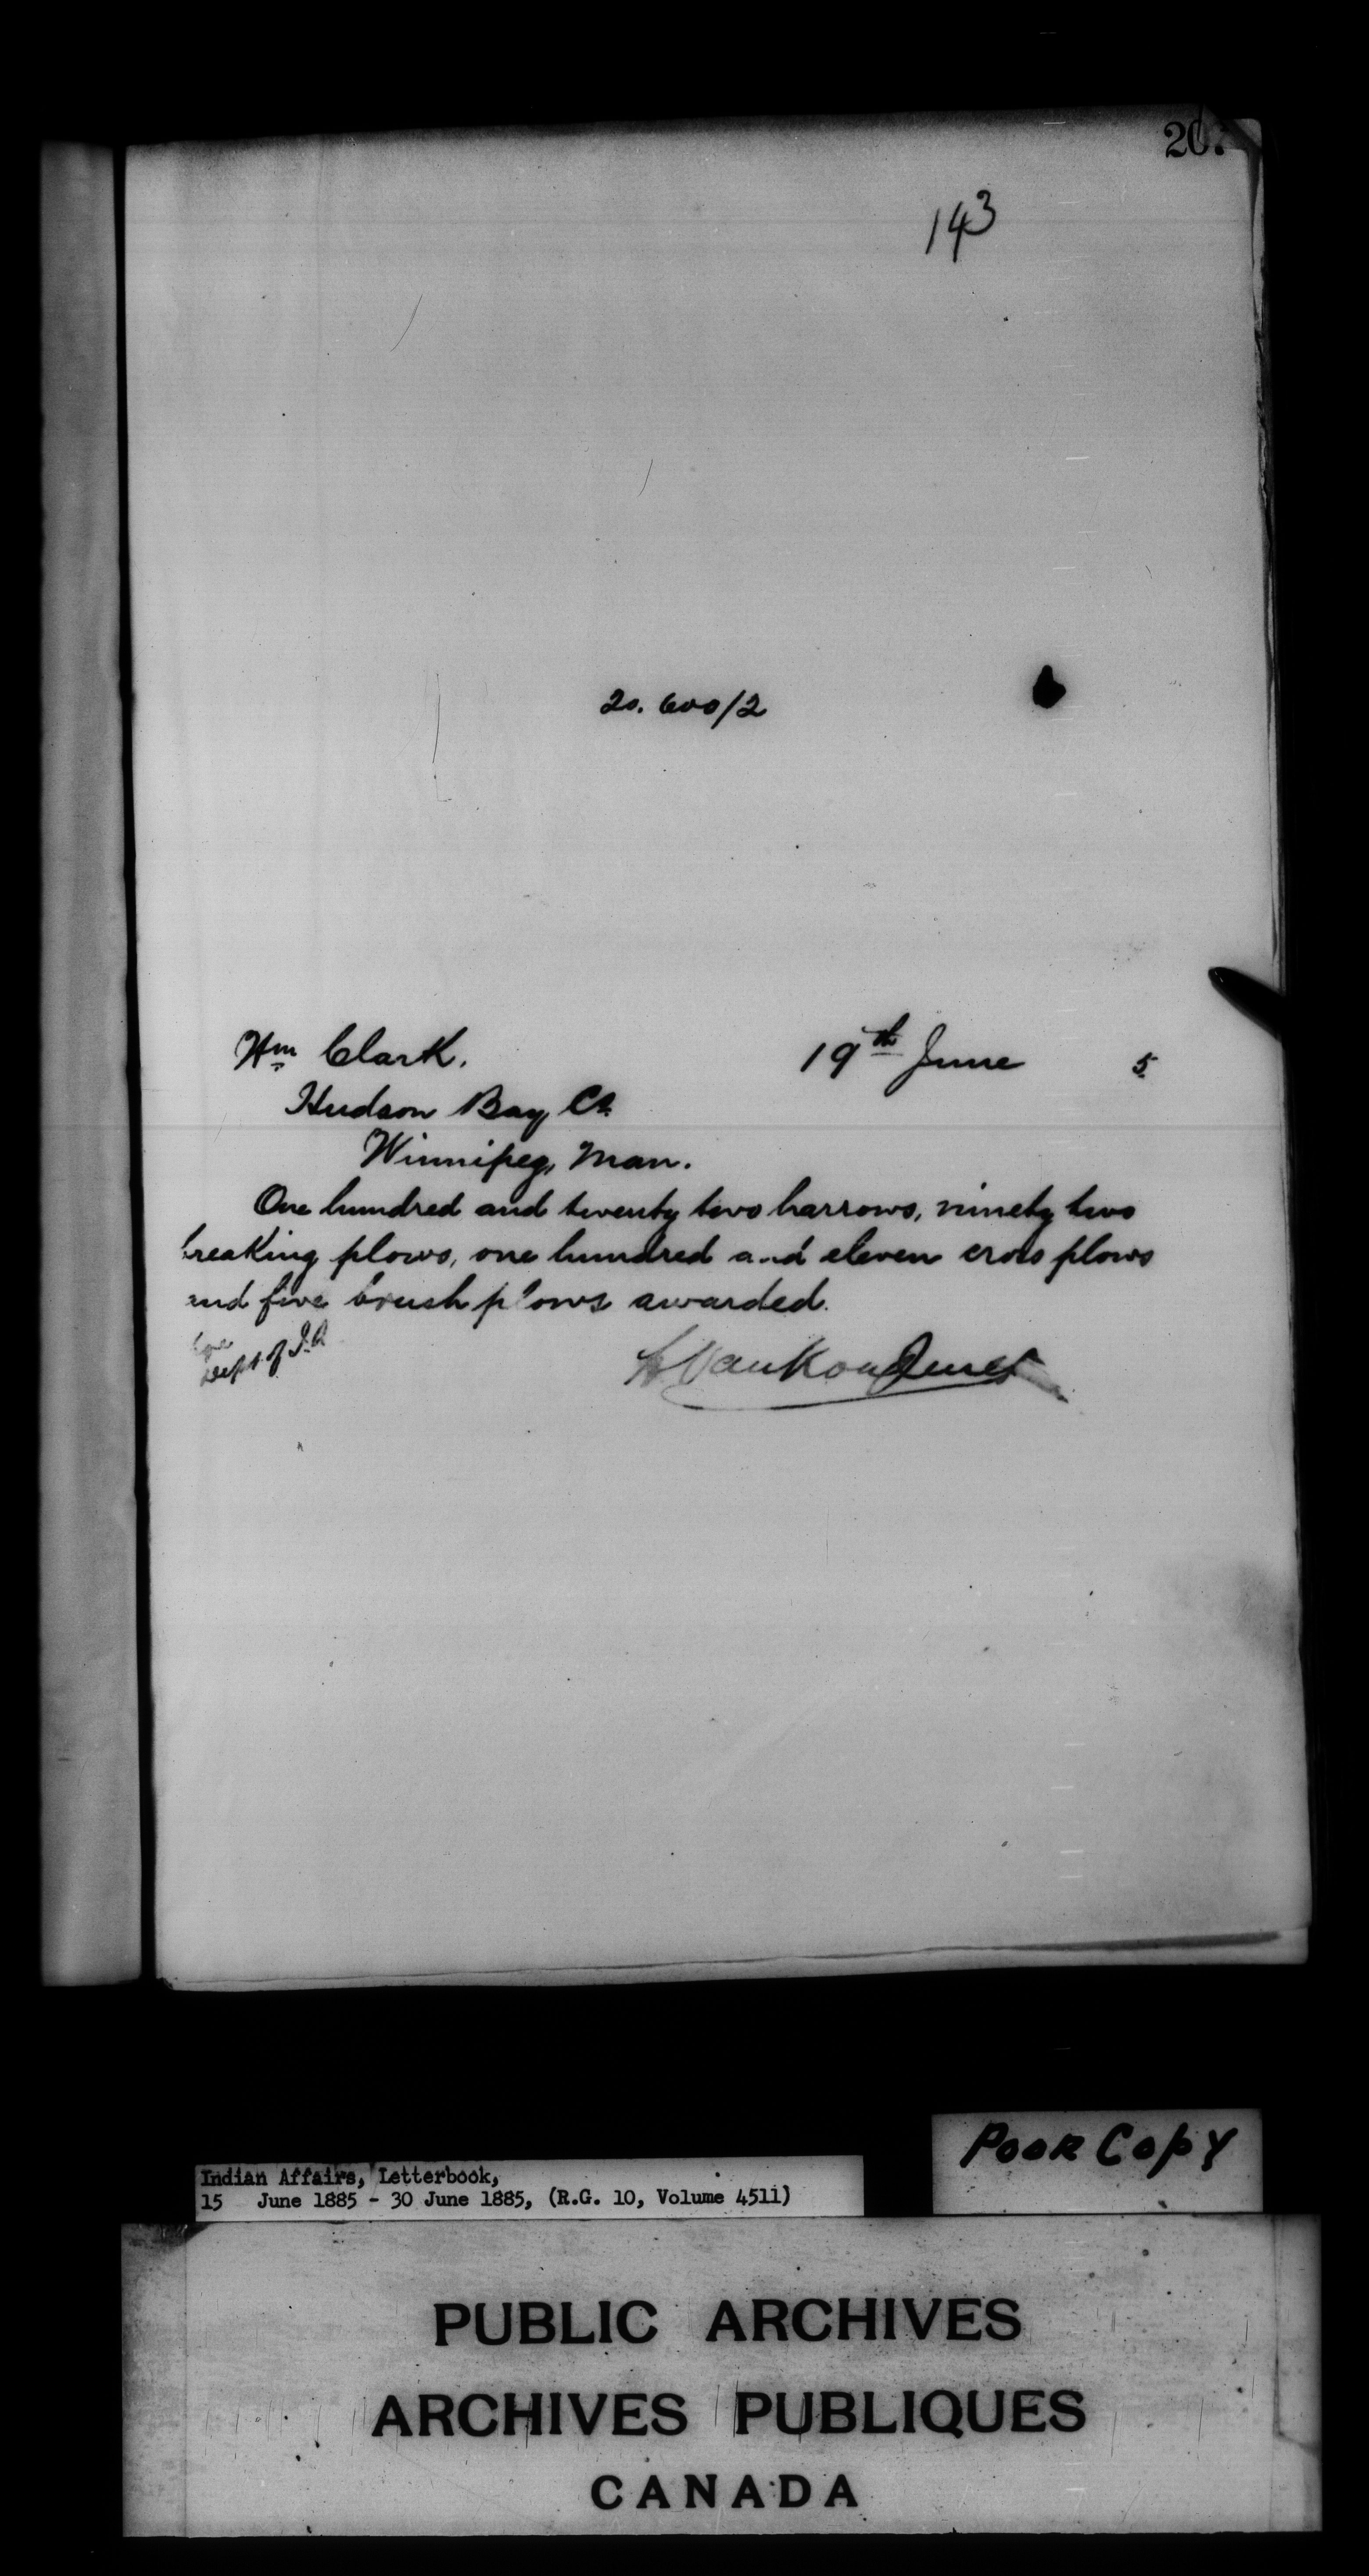 143
20.600/2
Wm Clark. 19th June 5
Hudson Bay Co.
Winnipeg, Man.
One hundred and twenty two harrows, ninety two
breaking plows, one hundred and eleven cross plows
and five brush plows awarded.
Dept. of I.A
L VanKoughnet
Poor Copy
Indian Affairs, Letterbook,
15 June 1885 - 30 June 1885, (R.G. 10, Volume 4511)
PUBLIC ARCHIVES
ARCHIVES PUBLIQUES
CANADA